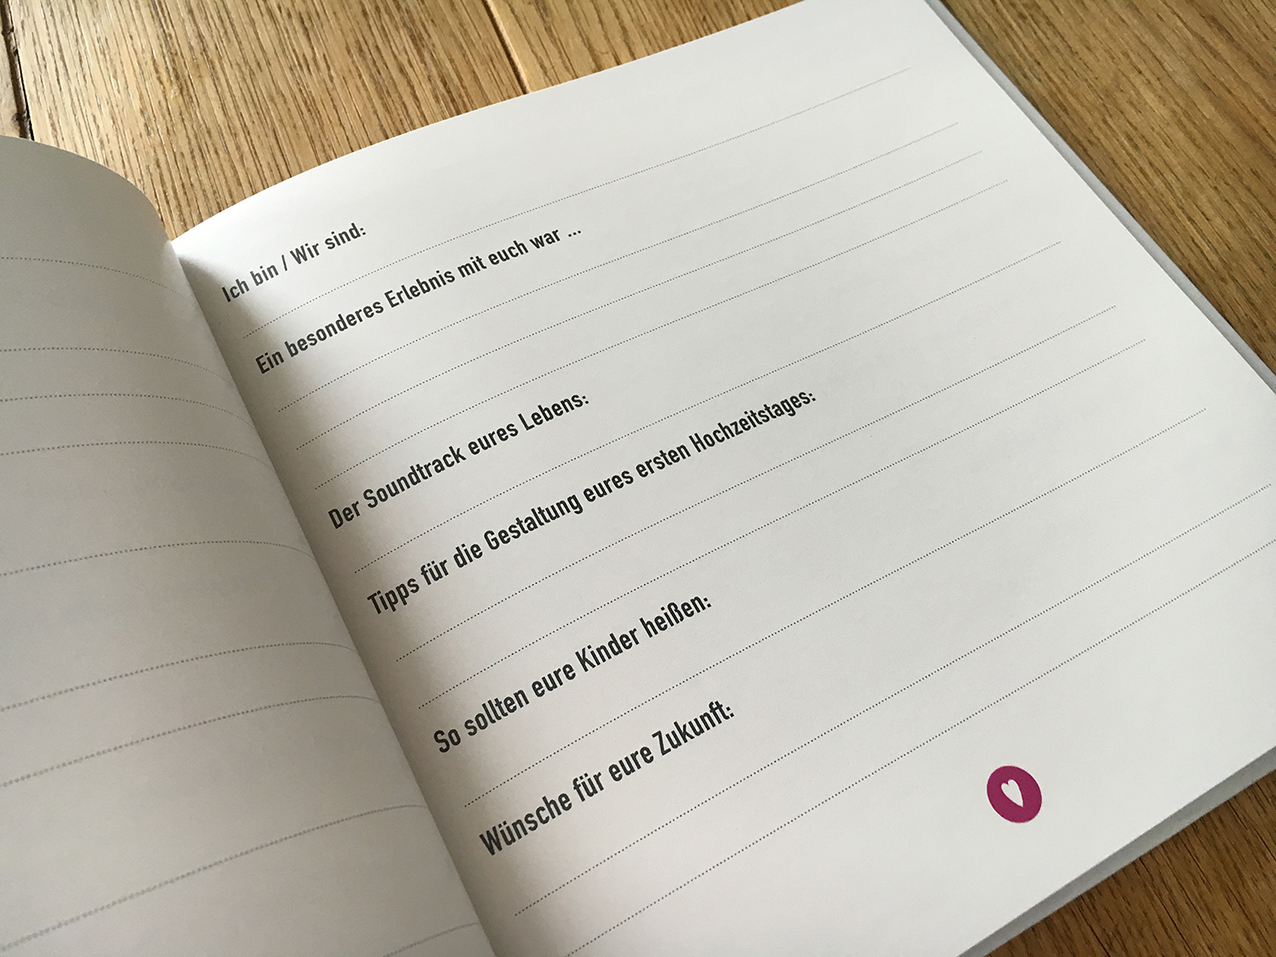 Ich bin / Wir sind:
Ein besonderes Erlebnis mit euch war ...
Der Soundtrack eures Lebens:
Tipps für die Gestaltung eures ersten Hochzeitstages:
So sollten eure Kinder heißen:
Wünsche für eure Zukunft: